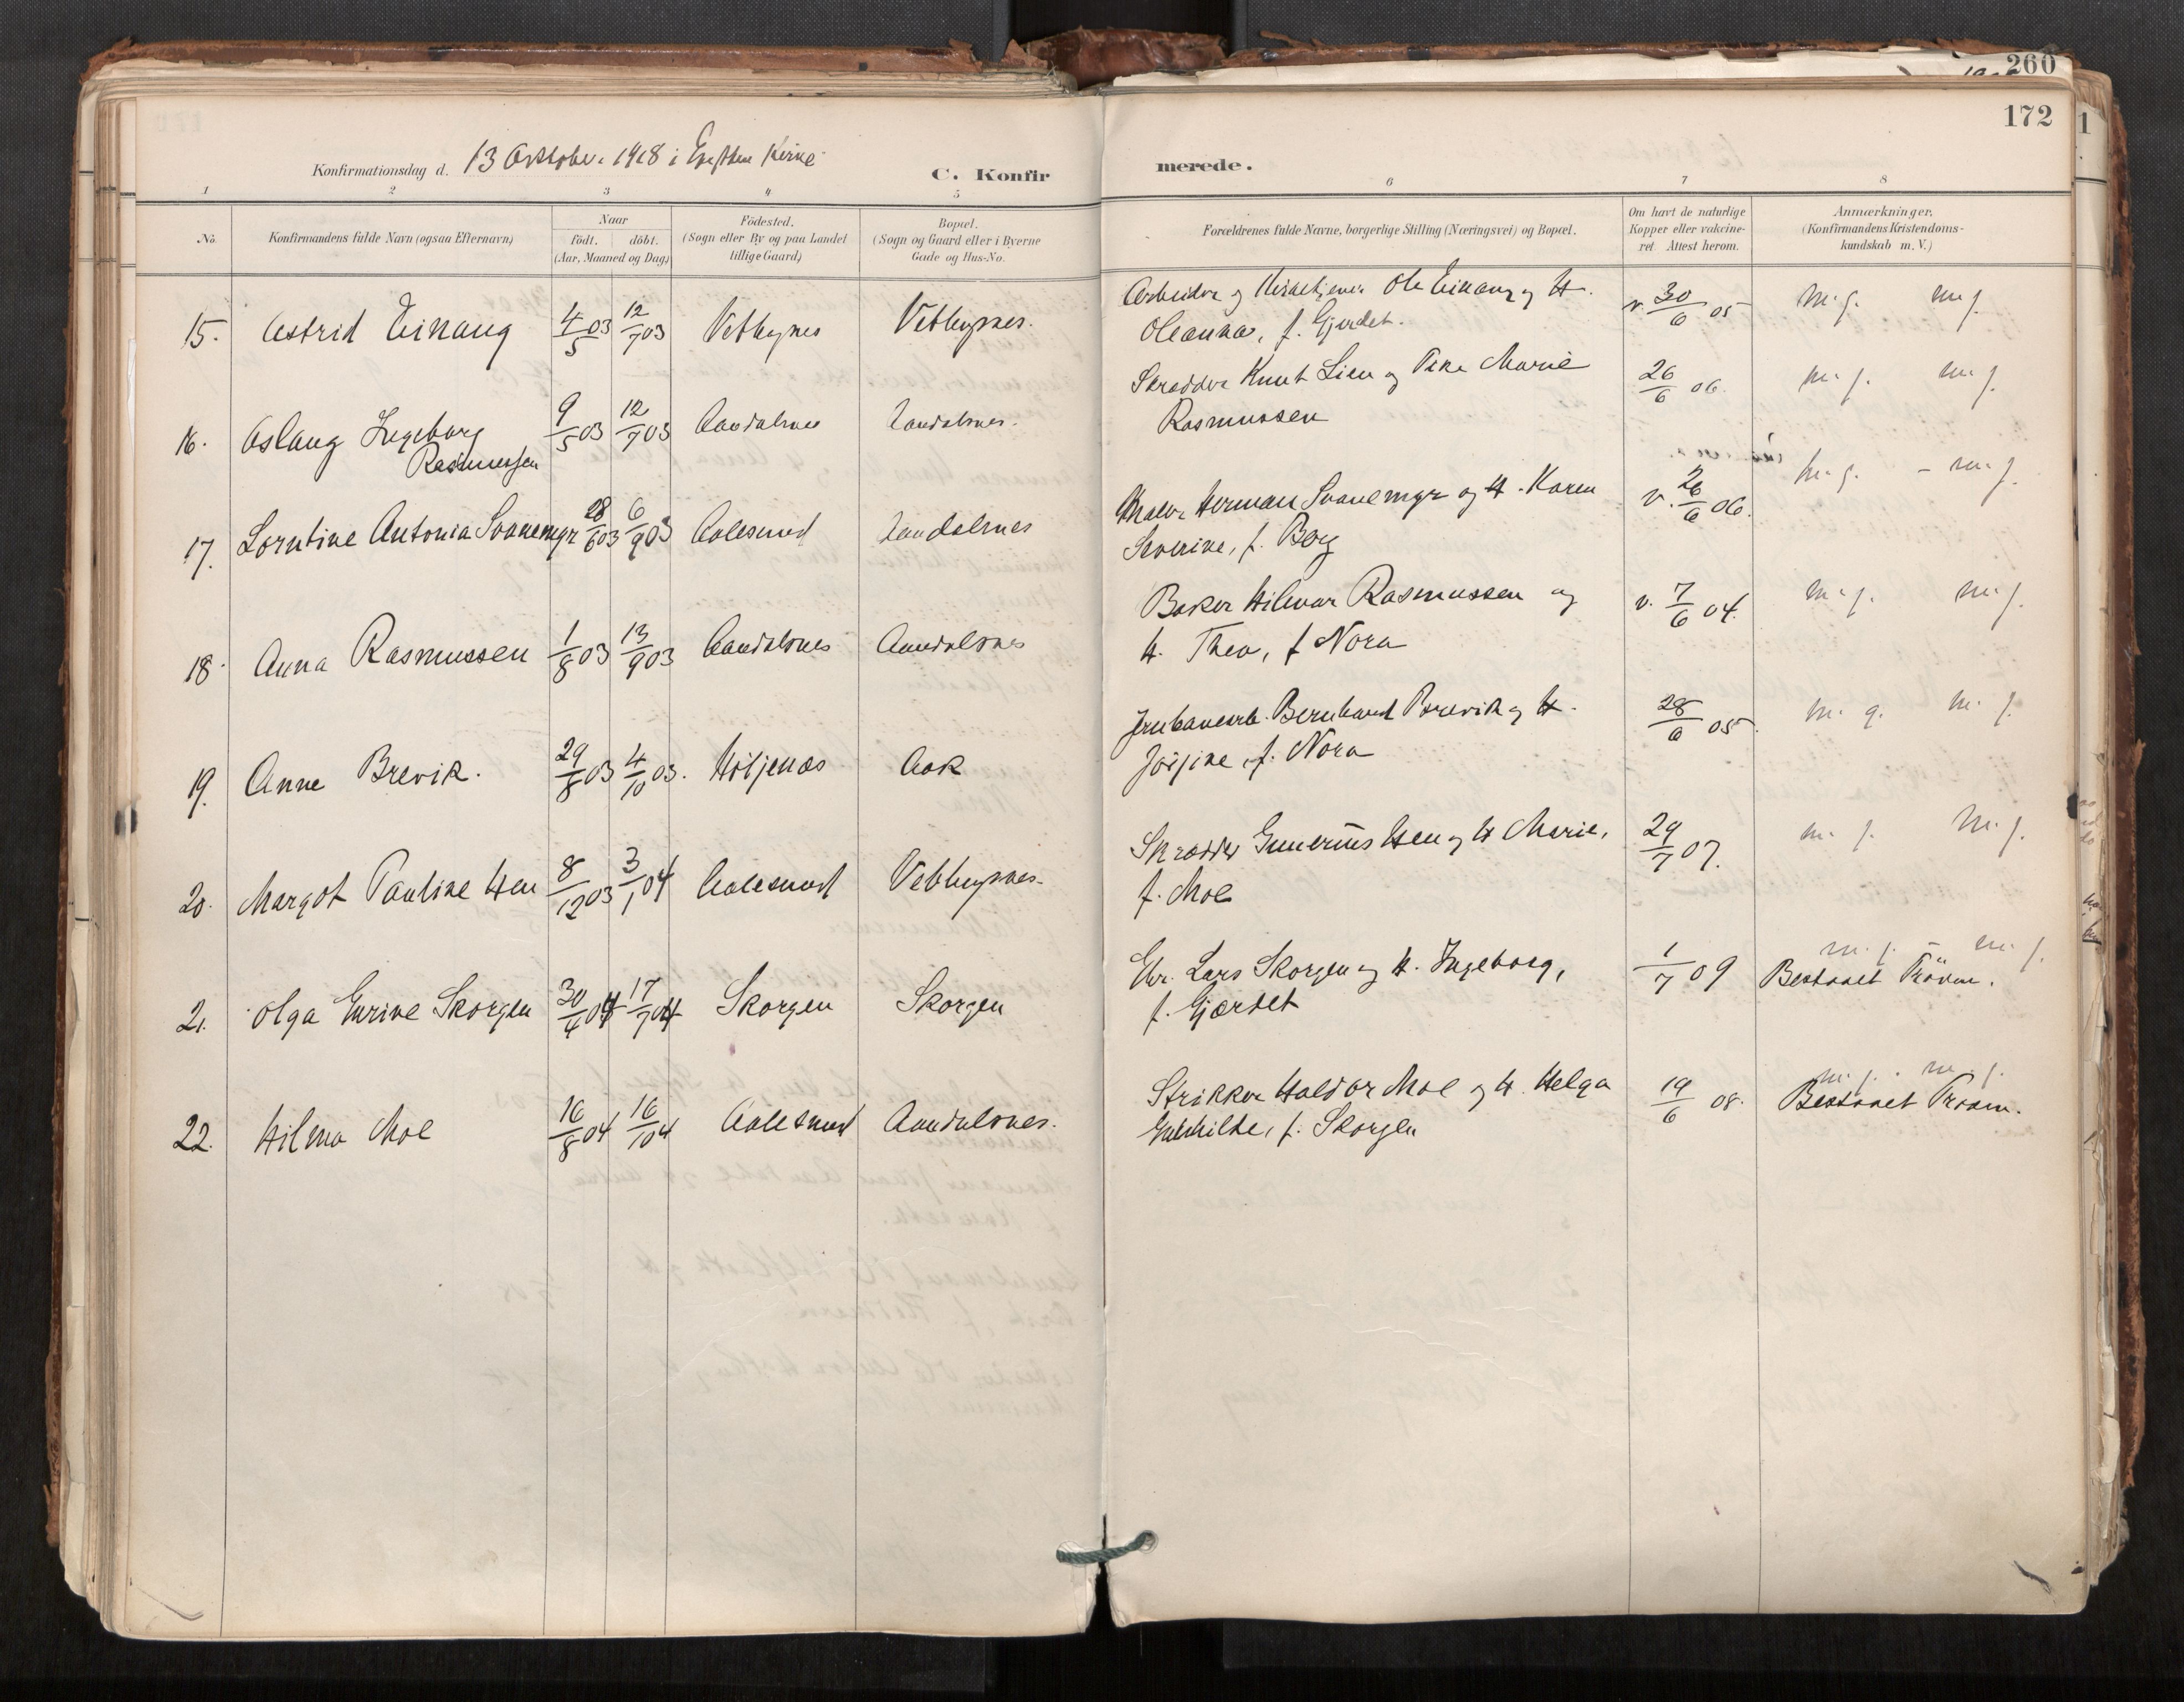 260
172
Konfirmationsdag d. 13 Oktober 1918 i Kirke
C. Konfirmerede.
1 2 3 4 5 6 7 8
No.
Konfirmandens fulde Navn (ogsaa Efternavn)
Naar
födt. döbt.
(Aar, Maaned og Dag)
Födested.
(Sogn eller By og paa Landet
tillige Gaard)
Bopæl.
(Sogn og Gaard eller i Byerne
Gade og Hus-No.
Forældrenes fulde Navne, borgerlige Stilling (Næringsvei) og Bopæl.
Om havt de naturlige
Kopper eller vakcine-
ret Attest herom.
Anmærkninger.
(Konfirmandens Kristendoms-
kundskab m. V.)
15. Astrid Einang 4/5 03 12/7 03 Veblugnes Veblugsnes. Arbeider og Kirketjener Ole Einang og H. v. 30/6 05 m. g. m g.
Oleanna, f. Gjerdet.
16. Aslaug Ingeborg 9/5 03 12/7 03 Aandalsnes Aandalsnes. Skrædder Knut Lien og Marie 26/6 06. m. g. m. g.
Rasmussen Rasmussen
17. Lorntine Antonia Svanemyr 28/6 03 6/9 03 Aalesund Aandalsnes Maler Herman Svanemyr og H. Karen v. 26/6 06. m. g. - m. g.
Severine, f. Borg
18. Anna Rasmussen 1/8 03 13/9 03 Aandalsnes Aandalsnes Baker Hilmar Rasmussen og v. 7/6 04. m. g. m. g.
H. Thea, f Nora
19. Anne Brevik. 29/8 03 4/10 03. Höljenæs Aak Jernbanearb. Bernhard Brevik og H. 28/6 05. m. g. m. g.
Jörgine, f. Nora
20. Margot Pauline Hen 8/12 03 3/1 04 Aalesund Veblugsnes. Skrædder Gunerius Hen og H Marie, 29/7 07. m. g. m. g.
f. Moe
21. Olga Enrine Skorgen 30/4 04 17/7 04 Skorgen Skorgen Gbr. Lars Skorgen og H. Ingeborg, 1/7 09 m. g. - m. g.
f. Gjærdet Bestaaet Pröven.
22. Hilma Moe 16/8 04 16/10 4 Aalesund Aandalsnes. Strikker Haldor Moe og H. Helga 19/6 08. m. g. - m. g.
f. Skorgen Bestaaet Pröven.